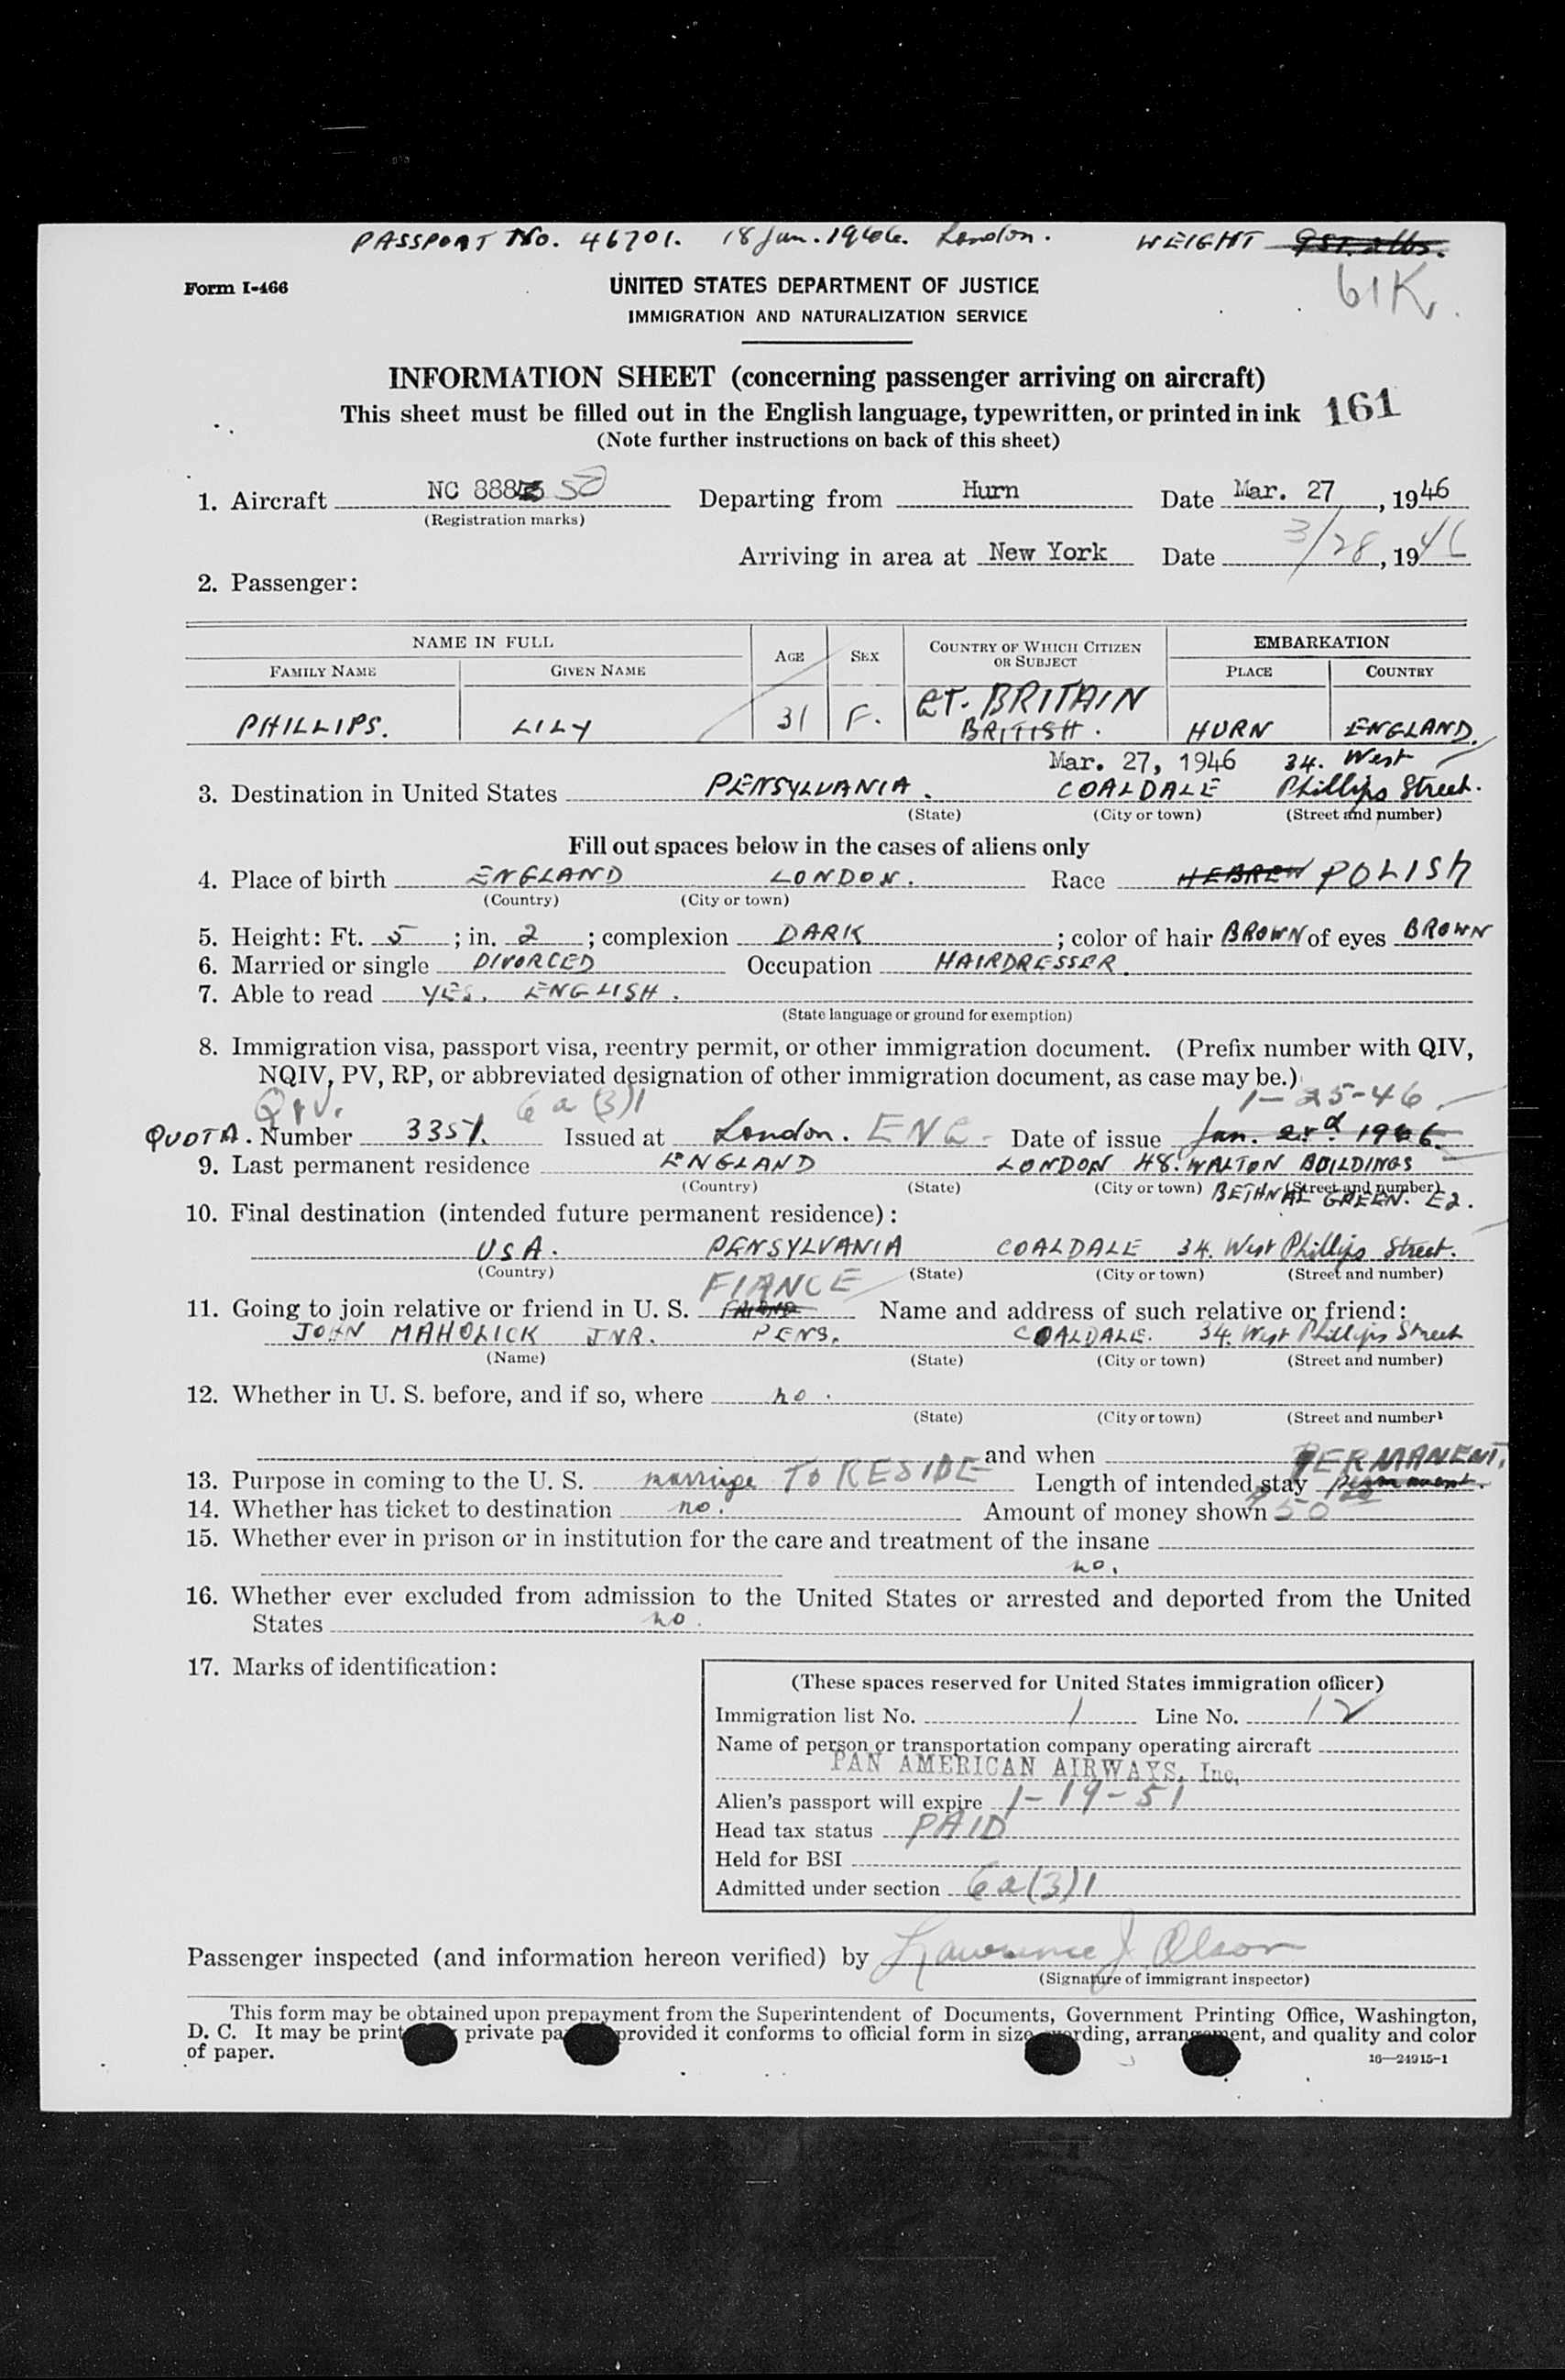 PASSPORT No. 46701. 18 Jan. 1946. London. WEIGHT 9ST. 2lbs.
61K.
Form I-466
UNITED STATES DEPARTMENT OF JUSTICE
IMMIGRATION AND NATURALIZATION SERVICE
INFORMATION SHEET (concerning passenger arriving on aircraft)
This sheet must be filled out in the English language, typewritten, or printed in ink 161
(Note further instructions on back of this sheet)
1. Aircraft NC 888 50 Departing from Hurn Date Mar. 27, 1946
(Registration marks)
Arriving in area at New York Date 3/28, 1946
2. Passenger:
NAME IN FULL AGE SEX COUNTRY OF WHICH CITIZEN OR SUBJECT EMBARKATION
FAMILY NAME GIVEN NAME PLACE COUNTRY
GT. BRITAIN
PHILLIPS. LILY 31 F. BRITISH. HURN ENGLAND.
Mar. 27, 1946 34. West
3. Destination in United States PENSYLVANIA. COALDALE Phillips Street.
(State) (City or town) (Street and number)
Fill out spaces below in the cases of aliens only
4. Place of birth ENGLAND LONDON. Race HEBREW POLISH
(Country) (City or town)
5. Height: Ft. 5 ; in. 2 ; complexion DARK ; color of hair BROWN of eyes BROWN
6. Married or single DIVORCED Occupation HAIRDRESSER.
7. Able to read YES. ENGLISH.
(State language or ground for exemption)
8. Immigration visa, passport visa, reentry permit, or other immigration document. (Prefix number with QIV,
NQIV, PV, RP, or abbreviated designation of other immigration document, as case may be.)
QIV. 6a(3)1 1-25-46
QUOTA. Number 3357. Issued at London. ENG- Date of issue Jan. 1946.
9. Last permanent residence ENGLAND LONDON 48. WALTON BUILDINGS
(Country) (State) (City or town) (Street and number)
BETHNAL GREEN. E2.
10. Final destination (intended future permanent residence):
USA. PENSYLVANIA COALDALE 34. West Phillips Street.
(Country) (State) (City or town) (Street and number)
FIANCE
11. Going to join relative or friend in U. S. FRIEND Name and address of such relative or friend:
JOHN MAHOLICK JNR. PENS. COALDALE. 34. West Phillips Street
(Name) (State) (City or town) (Street and number)
12. Whether in U. S. before, and if so, where no.
(State) (City or town) (Street and number)
and when PERMANENT.
13. Purpose in coming to the U. S. marriage TO RESIDE Length of intended stay permanent.
14. Whether has ticket to destination no. Amount of money shown 50
15. Whether ever in prison or in institution for the care and treatment of the insane
no.
16. Whether ever excluded from admission to the United States or arrested and deported from the United
States no.
17. Marks of identification:
(These spaces reserved for United States immigration officer)
Immigration list No. 1 Line No. 12
Name of person or transportation company operating aircraft
PAN AMERICAN AIRWAYS, Inc.
Alien's passport will expire 1-19-51
Head tax status PAID
Held for BSI
Admitted under section 6a(3)1
Passenger inspected (and information hereon verified) by Lawrence J. Olson
(Signature of immigrant inspector)
This form may be obtained upon prepayment from the Superintendent of Documents, Government Printing Office, Washington,
D. C. It may be print private pa provided it conforms to official form in size, wording, arrangement, and quality and color
of paper.
16—24915-1